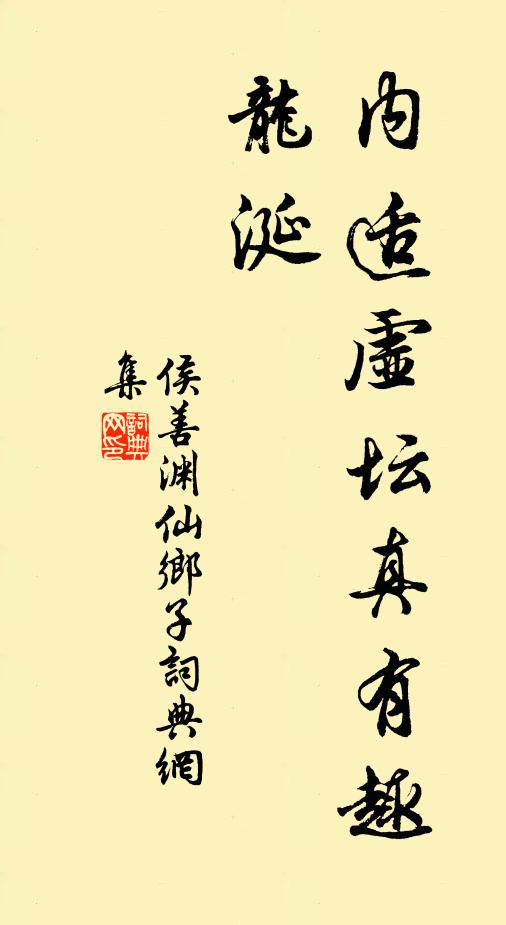 内适虚坛真有趣
龍涎
侯善渊仙鄉子詞典網
集
詞典
网印